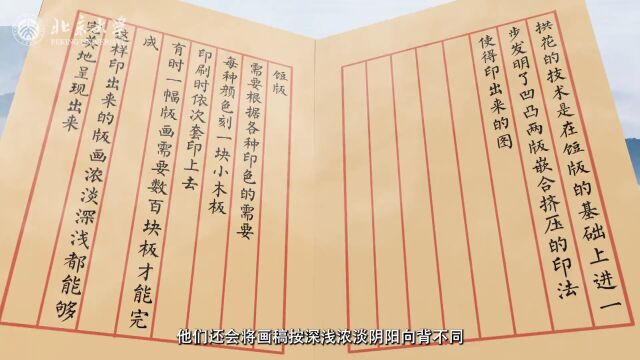 北京大学
PEKING UNIVERSITY
拱花的技术是在饾版的基础上进一
步发明了凹凸两版嵌合挤压的印法
使得印出来的图
饾版
需要根据各种印色的需要
每种颜色刻一块小木板
印刷时依次套印上去
有时一幅版画需要数百块板才能完
成
这样印出来的版画浓淡深浅都能够
完美地呈现出来
他们还会将画稿按深浅浓淡阴阳向背不同